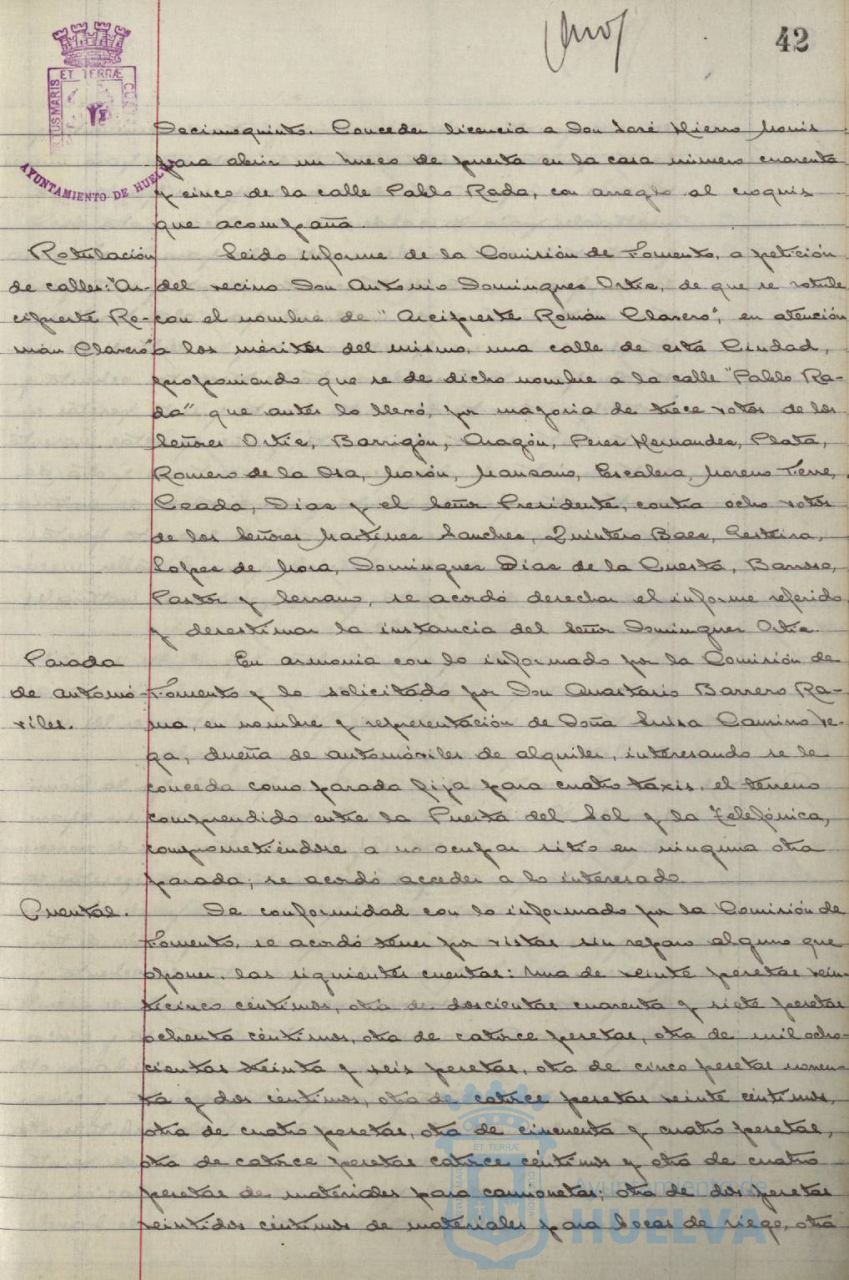 42
ET TERRÆ
AYUNTAMIENTO DE HUELVA
Decimoquinto. Conceder licencia a Don José Hierro
para abrir un hueco de puerta en la casa número cuarenta
y cinco de la calle Pablo Rada, con arreglo al croquis
que acompaña.
Rotulación
de calles: "Ar-
cipreste Ro-
mán Clavero"
Leido informe de la Comisión de Fomento, a petición
del vecino Don Antonio Domingues Ortiz, de que se rotule
con el nombre de "Arcipreste Román Clavero", en atención
a los méritos del mismo, una calle de esta Ciudad,
proponiendo que se de dicho nombre a la calle "Pablo Ra-
da" que antes lo llevó, por mayoria de trece votos de los
Señores Ortiz, Barrigón, Aragón, Peres Hernandez, Plata,
Romero de la Osa, Morón, Manzano, Escalera, Moreno
Ceada, Dias y el Señor Presidente, contra ocho votos
de los Señores Martines Sanches, Quintero Baes,
Lopes de Mora, Domingues Dias de la Cuesta, Barroso,
Pastor y Serrano, se acordó desechar el informe referido
y desestimar la instancia del Señor Domingues Ortiz.
Parada
de automó-
viles.
En armonia con lo informado por la Comisión de
Fomento y lo solicitado por Don Anastasio Barrero Ra-
ma, en nombre y representación de Doña Luisa Camino Ve-
ga, dueña de automóviles de alquiler, interesando se le
conceda como parada fija para cuatro taxis, el terreno
comprendido entre la Puerta del Sol y la Telefónica,
comprometiéndose a no ocupar sitio en ninguna otra
parada; se acordó acceder a lo interesado
Cuentas.
De conformidad con lo informado por la Comisión de
Fomento, se acordó tener por vistas sin reparo alguno que
oponer, las siguientes cuentas: una de veinte pesetas vein-
ticinco céntimos, otra de doscientas cuarenta y siete pesetas
ochenta céntimos, otra de catorce pesetas, otra de mil ocho-
cientas treinta y seis pesetas, otra de cinco pesetas noven-
ta y dos céntimos, otra de catorce pesetas veinte céntimos,
otra de cuatro pesetas, otra de cincuenta y cuatro pesetas,
otra de catorce pesetas catorce céntimos y otra de cuatro
pesetas de materiales para camionetas; otra de dos pesetas
veintidos céntimos de materiales para bocas de riego, otra
Ayuntamiento de
HUELVA